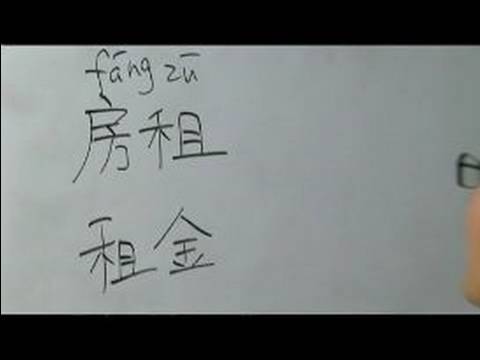 fāng zū
房租
租金